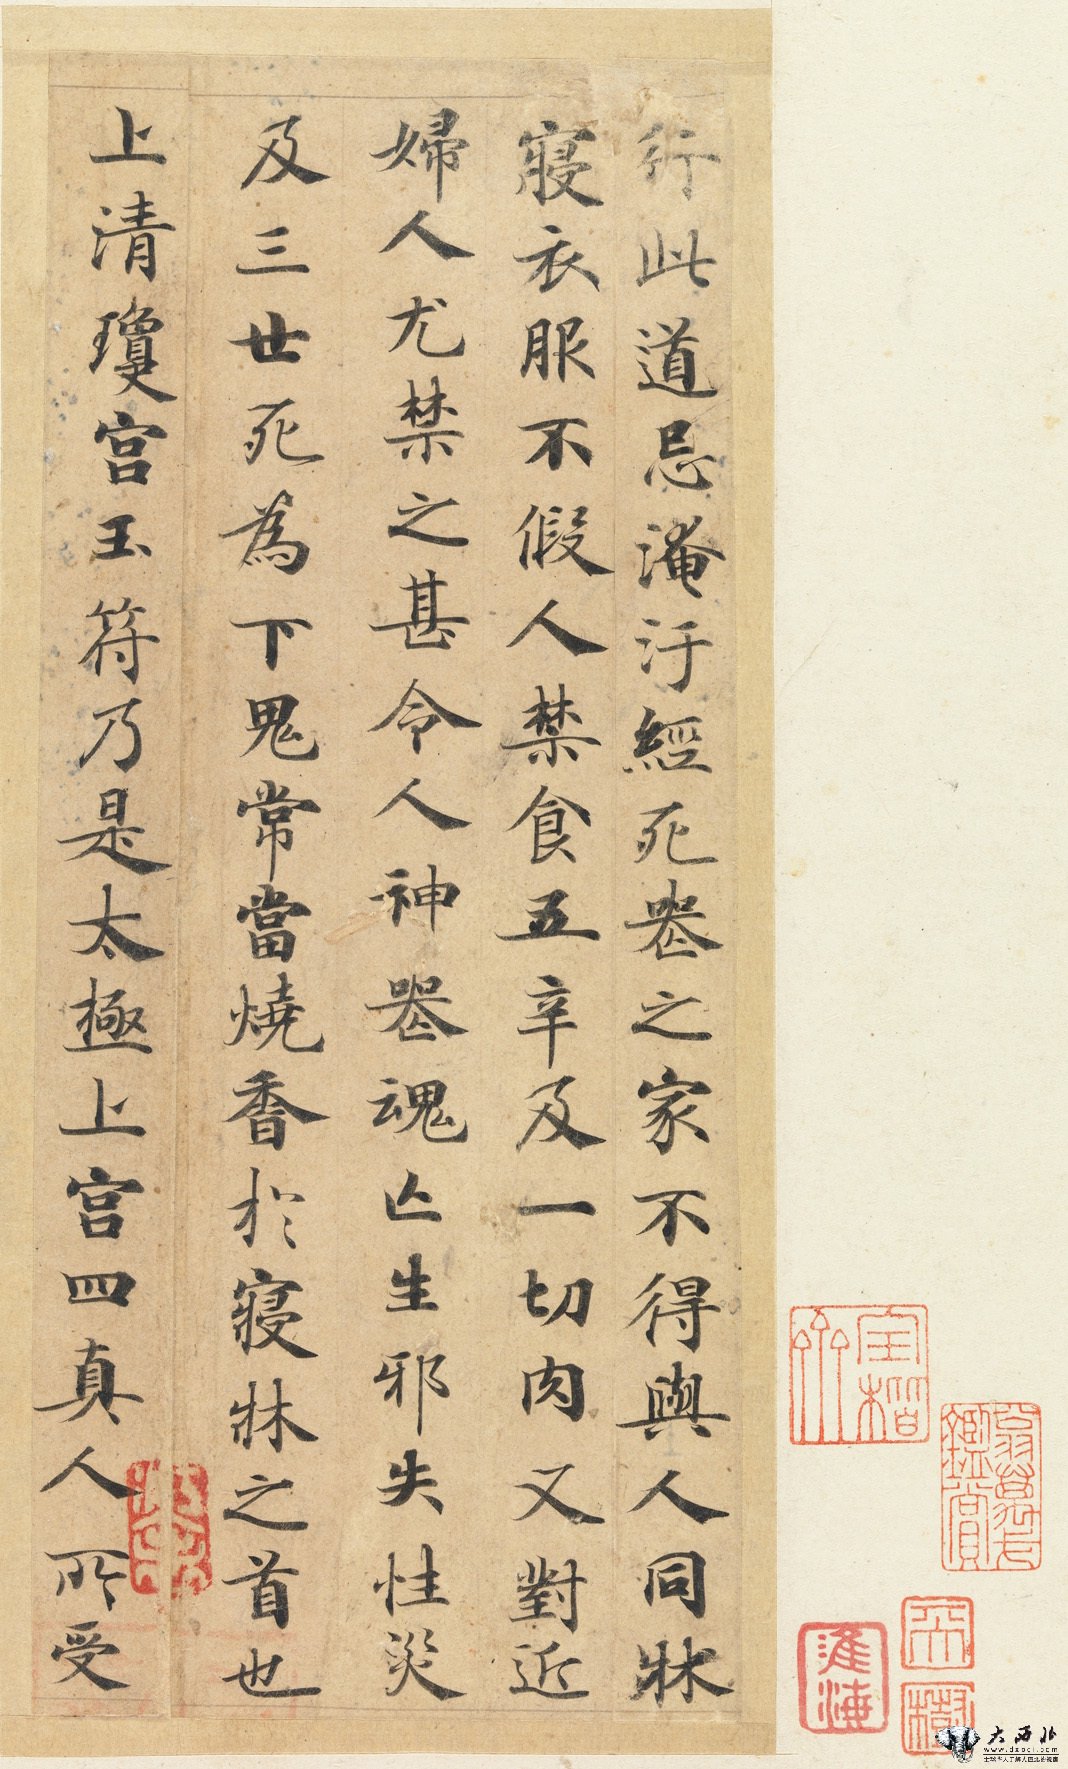 行此道忌淹汙經死䘮之家不得與人同牀
寢衣服不假人禁食五辛及一切肉又對近
婦人尤禁之甚令人神䘮魂亡生邪失性災
及三世死為下鬼常當燒香於寢牀之首也
上清瓊宮玉符乃是太極上宮四真人所受
淮海
大西北
www.dxbei.com